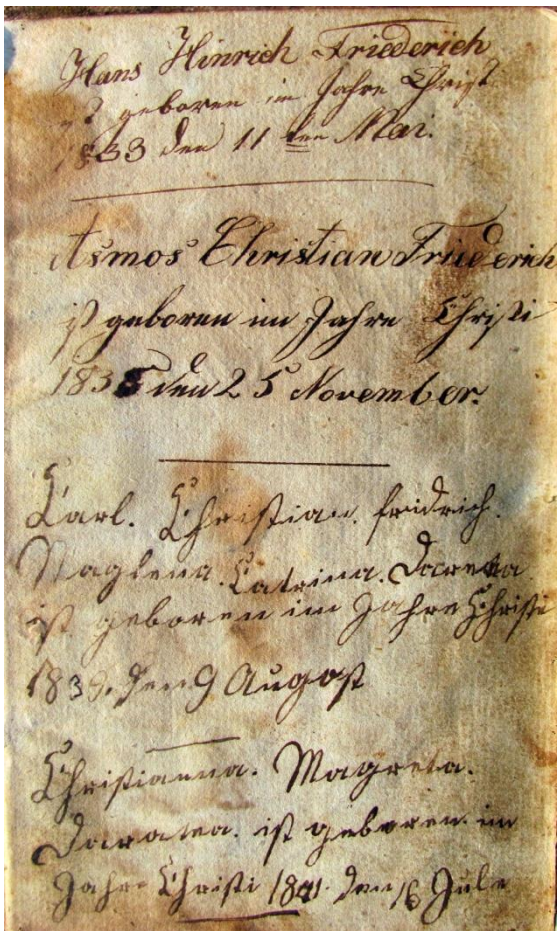 Hans Hinrich Friederich
ist geboren im Jahre Christ
1833 den 11 ten Mai.
Asmos Christian Friederich
ist geboren im Jahre Christi
1835 den 25 November.
Carl. Christian. fridrich.
Maglena. Catrina. Dareta
ist geboren im Jahre Christi
den 9 August
Christianna. Magreta.
Daratea. ist geboren im
Jahre Christi 1841. den 16 Jule